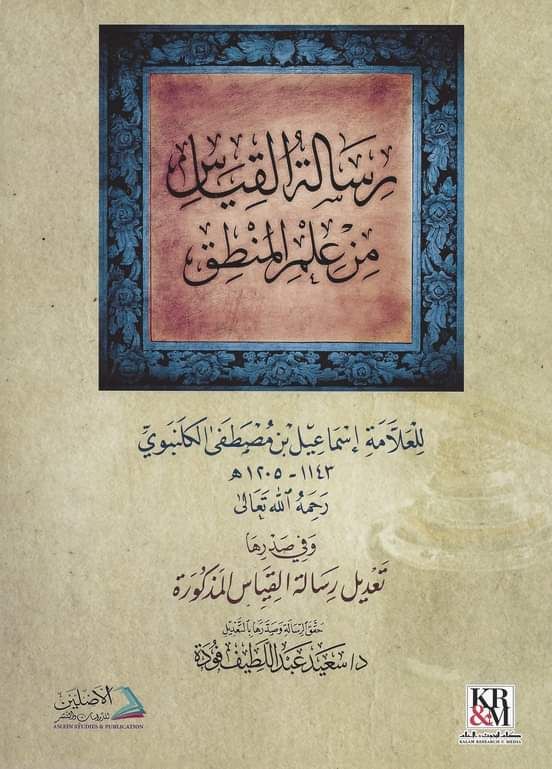 رسالة القياس
من علم المنطق
للعلامة إسماعيل بن مصطفى الكلنبوي
١١٤٣ - ١٢٠٥ هـ
رحمه الله تعالى
وفي صدرها
تعديل رسالة القياس المذكورة
حقق الرسالة وصدرها بالتعديل
د/ سعيد عبد اللطيف فودة
الأصلين
للدراسات والنشر
ASLEIN STUDIES & PUBLICATION
KR
&M
كلام للبحوث والإعلام
KALAM RESEARCH & MEDIA